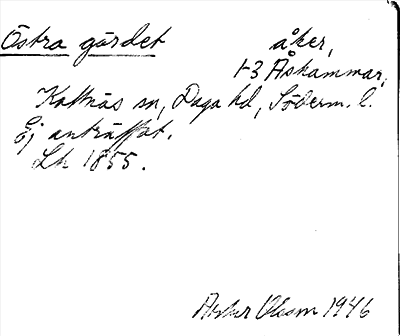 Östra gärdet åker,
1-3 Åskammar,
Kattnäs sn, Daga hd, Söderm. l.
Ej anträffat.
Lh 1855.
Olsson 1946